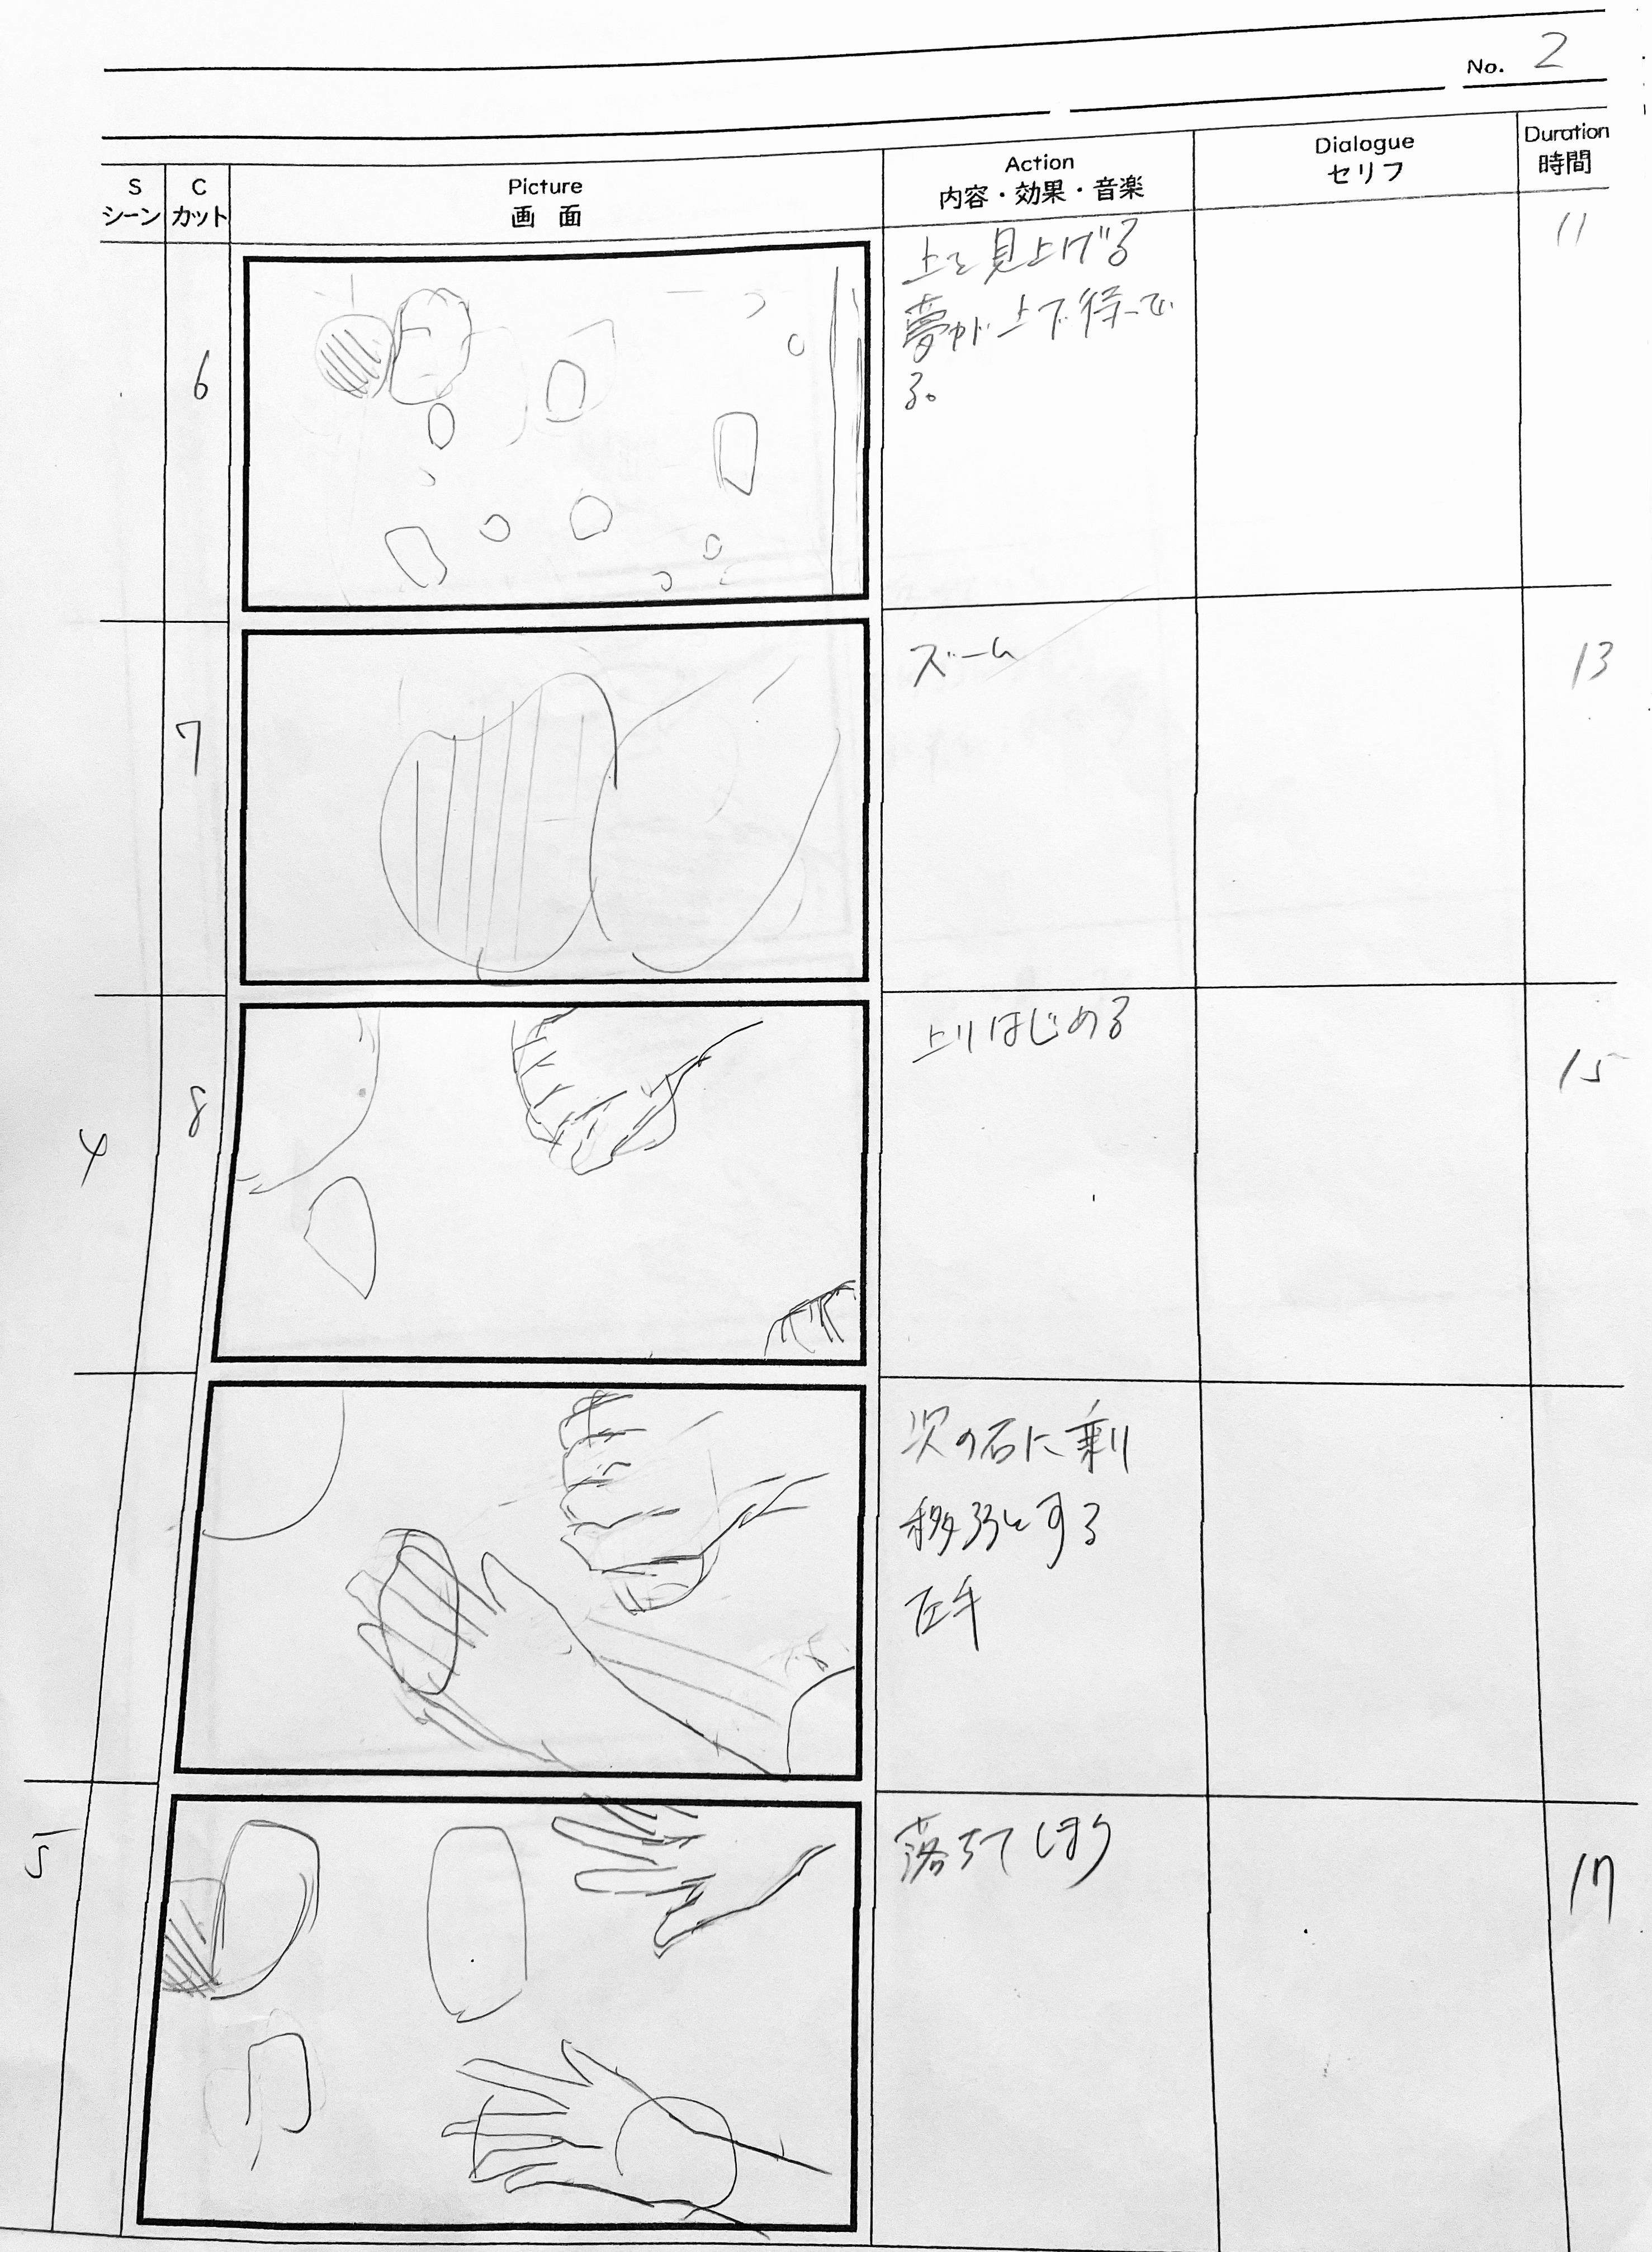 No. 2
S
シーン
C
カット
Picture
画 面
Action
内容・効果・音楽
Dialogue
セリフ
Duration
時間
6
上を見上げる
夢が上で待って
る。
11
7
ズーム
13
4
8
上りはじめる
15
次の石に乗り
移ろうとする
左手
5
落ちてしまう
17